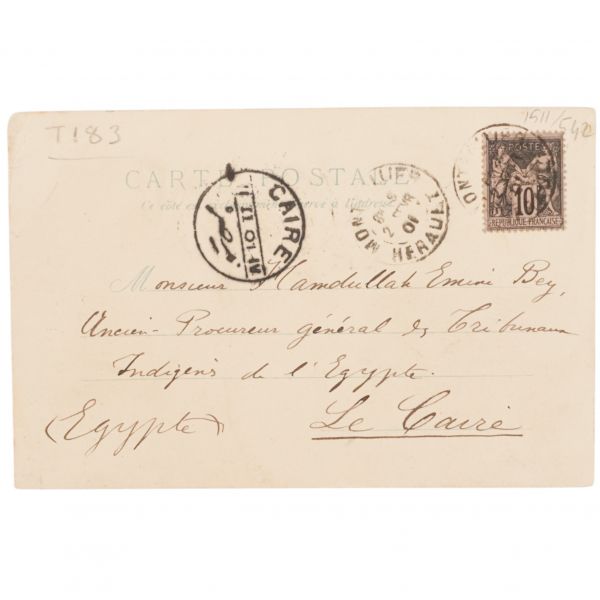 T183
1511/542
CARTE POSTALE
Ce côté est exclusivement réservé à l'adresse
POSTES
10
REPUBLIQUE FRANÇAISE
MONTPELLIER
2
01
HERAULT
CAIRE
II 01
Monsieur Hamdullah Emini Bey,
Ancien-Procureur général des Tribunaux
Indigens de l'Egypte.
(Egypte)
Le Caire